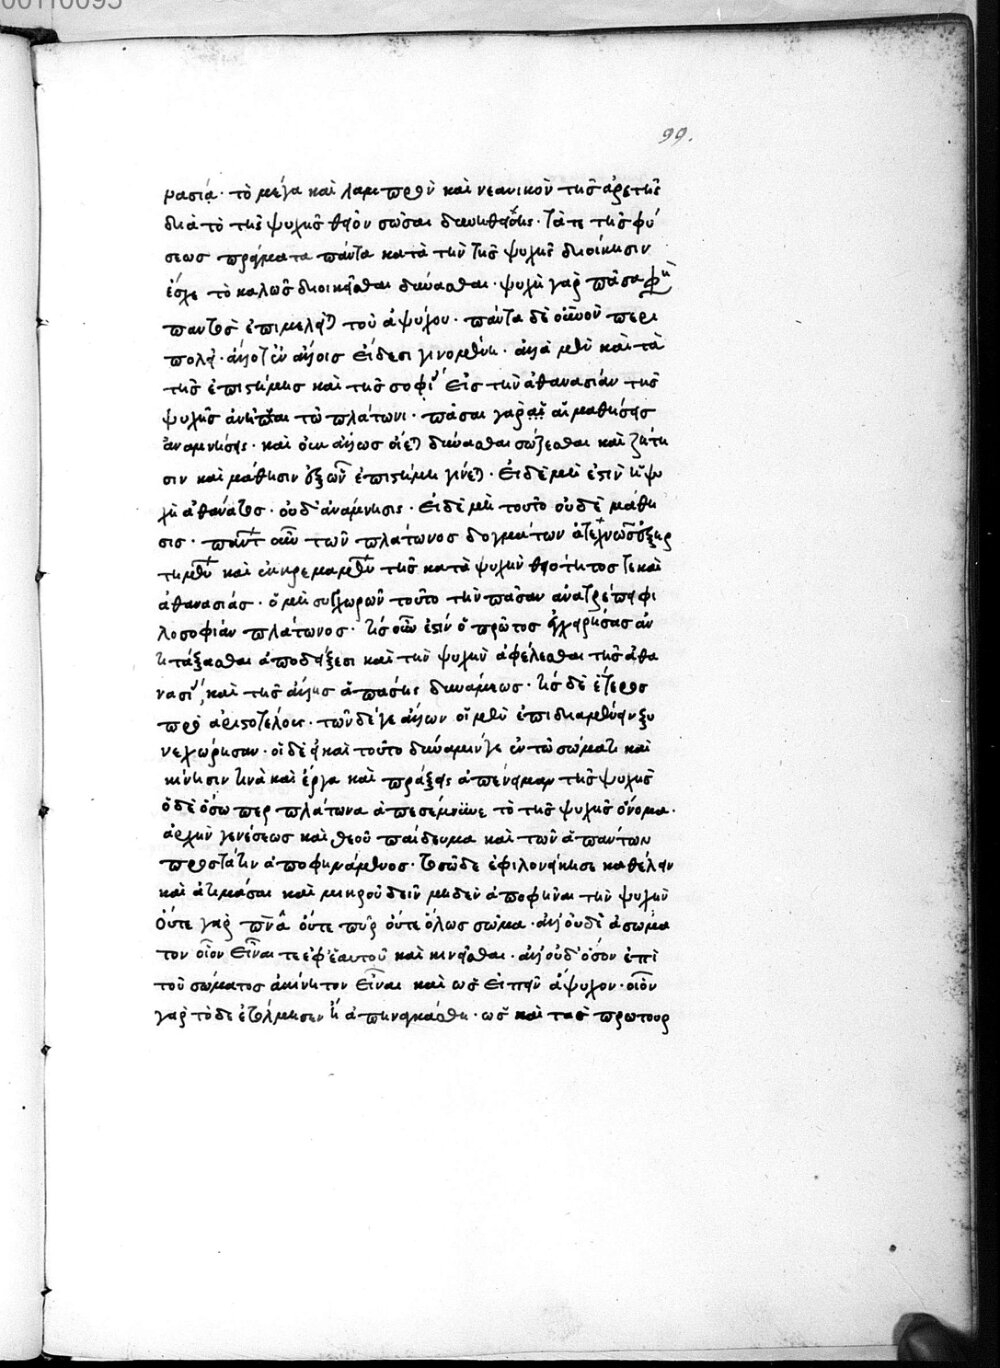 00110093
99.
μασία· τὸ μέγα καὶ λαμπρὸν καὶ νεανικὸν τῆς ἀρετῆς
διὰ τὸ τῆς ψυχῆς θεῖον σῶσαι δυνηθείσης· τά τε τῆς φύ
σεως πράγματα πάντα κατὰ τὴν τῆς ψυχῆς διοίκησιν
ἔσχε τὸ καλῶς διοικεῖσθαι δύνασθαι· ψυχὴ γὰρ πᾶσα φησὶ
παντὸς ἐπιμελεῖται τοῦ ἀψύχου· πάντα δὲ οὐρανὸν περι
πολεῖ· ἄλλοτε ἐν ἄλλοις εἴδεσι γινομένη· ἀλλὰ μὲν καὶ τὰ
τῆς ἐπιστήμης καὶ τῆς σοφίας εἰς τὴν ἀθανασίαν τῆς
ψυχῆς ἀνῆπται τῷ πλάτωνι· πᾶσαι γὰρ αἱ μαθήσεις
ἀναμνήσεις· καὶ οὐκ ἄλλως οἴεται δύνασθαι σώζεσθαι καὶ ζήτη
σιν καὶ μάθησιν ἐξ ὧν ἐπιστήμη γίνεται· εἰ δὲ μή ἐστιν ἡ ψυ
χὴ ἀθάνατος· οὐδ' ἀνάμνησις· εἰ δὲ μὴ τοῦτο οὐδὲ μάθη
σις· πάντων οὖν τῶν πλάτωνος δογμάτων ἀτεχνῶς ἐξηρ
τημένων καὶ ἐκκρεμαμένων τῆς κατὰ ψυχὴν θειότητός τε καὶ
ἀθανασίας· ὁ μὴ συγχωρῶν τοῦτο τὴν πᾶσαν ἀνατρέπει φι
λοσοφίαν πλάτωνος· τίς οὖν ἐστιν ὁ πρῶτος ἐγχειρήσας ἀν
τιτάξασθαι ἀποδείξεσι καὶ τὴν ψυχὴν ἀφελέσθαι τῆς ἀθα
νασίας, καὶ τῆς ἄλλης ἁπάσης δυνάμεως· τίς δὲ ἕτερος
πρὸ ἀριστοτέλους· τῶν δέ γε ἄλλων οἱ μὲν ἐπιδιαμένειν ξυ
νεχώρησαν· οἱ δὲ εἰ καὶ τοῦτο δύναμίν γε ἐν τῷ σώματι καὶ
κίνησίν τινα καὶ ἔργα καὶ πράξεις ἀπένειμαν τῆς ψυχῆς
ὁ δὲ ὅσῳ περ πλάτωνα ἀπεσέμνυνε τὸ τῆς ψυχῆς ὄνομα·
ἀρχὴν γενέσεως καὶ θεοῦ παίδευμα καὶ τῶν ἁπάντων
προστάτιν ἀποφηνάμενος· τοσῶδε ἐφιλονείκησε καθελεῖν
καὶ ἀτιμάσαι καὶ μικροῦ δεῖν μηδὲν ἀποφῆναι τὴν ψυχὴν
οὔτε γὰρ πνεῦμα οὔτε πῦρ οὔτε ὅλως σῶμα· ἀλλ' οὐδὲ ἀσώμα
τον οἷον εἶναι τε ἐφ' ἑαυτοῦ καὶ κινεῖσθαι· ἀλλ' οὐδ' ὅσον ἐπὶ
τοῦ σώματος ἀκίνητον εἶναι καὶ ὡς εἰπεῖν ἄψυχον· οἷον
γὰρ τόδε ἐτόλμησεν ἢ ἀπηναγκάσθη· ὡς καὶ τὰς πρωτουρ